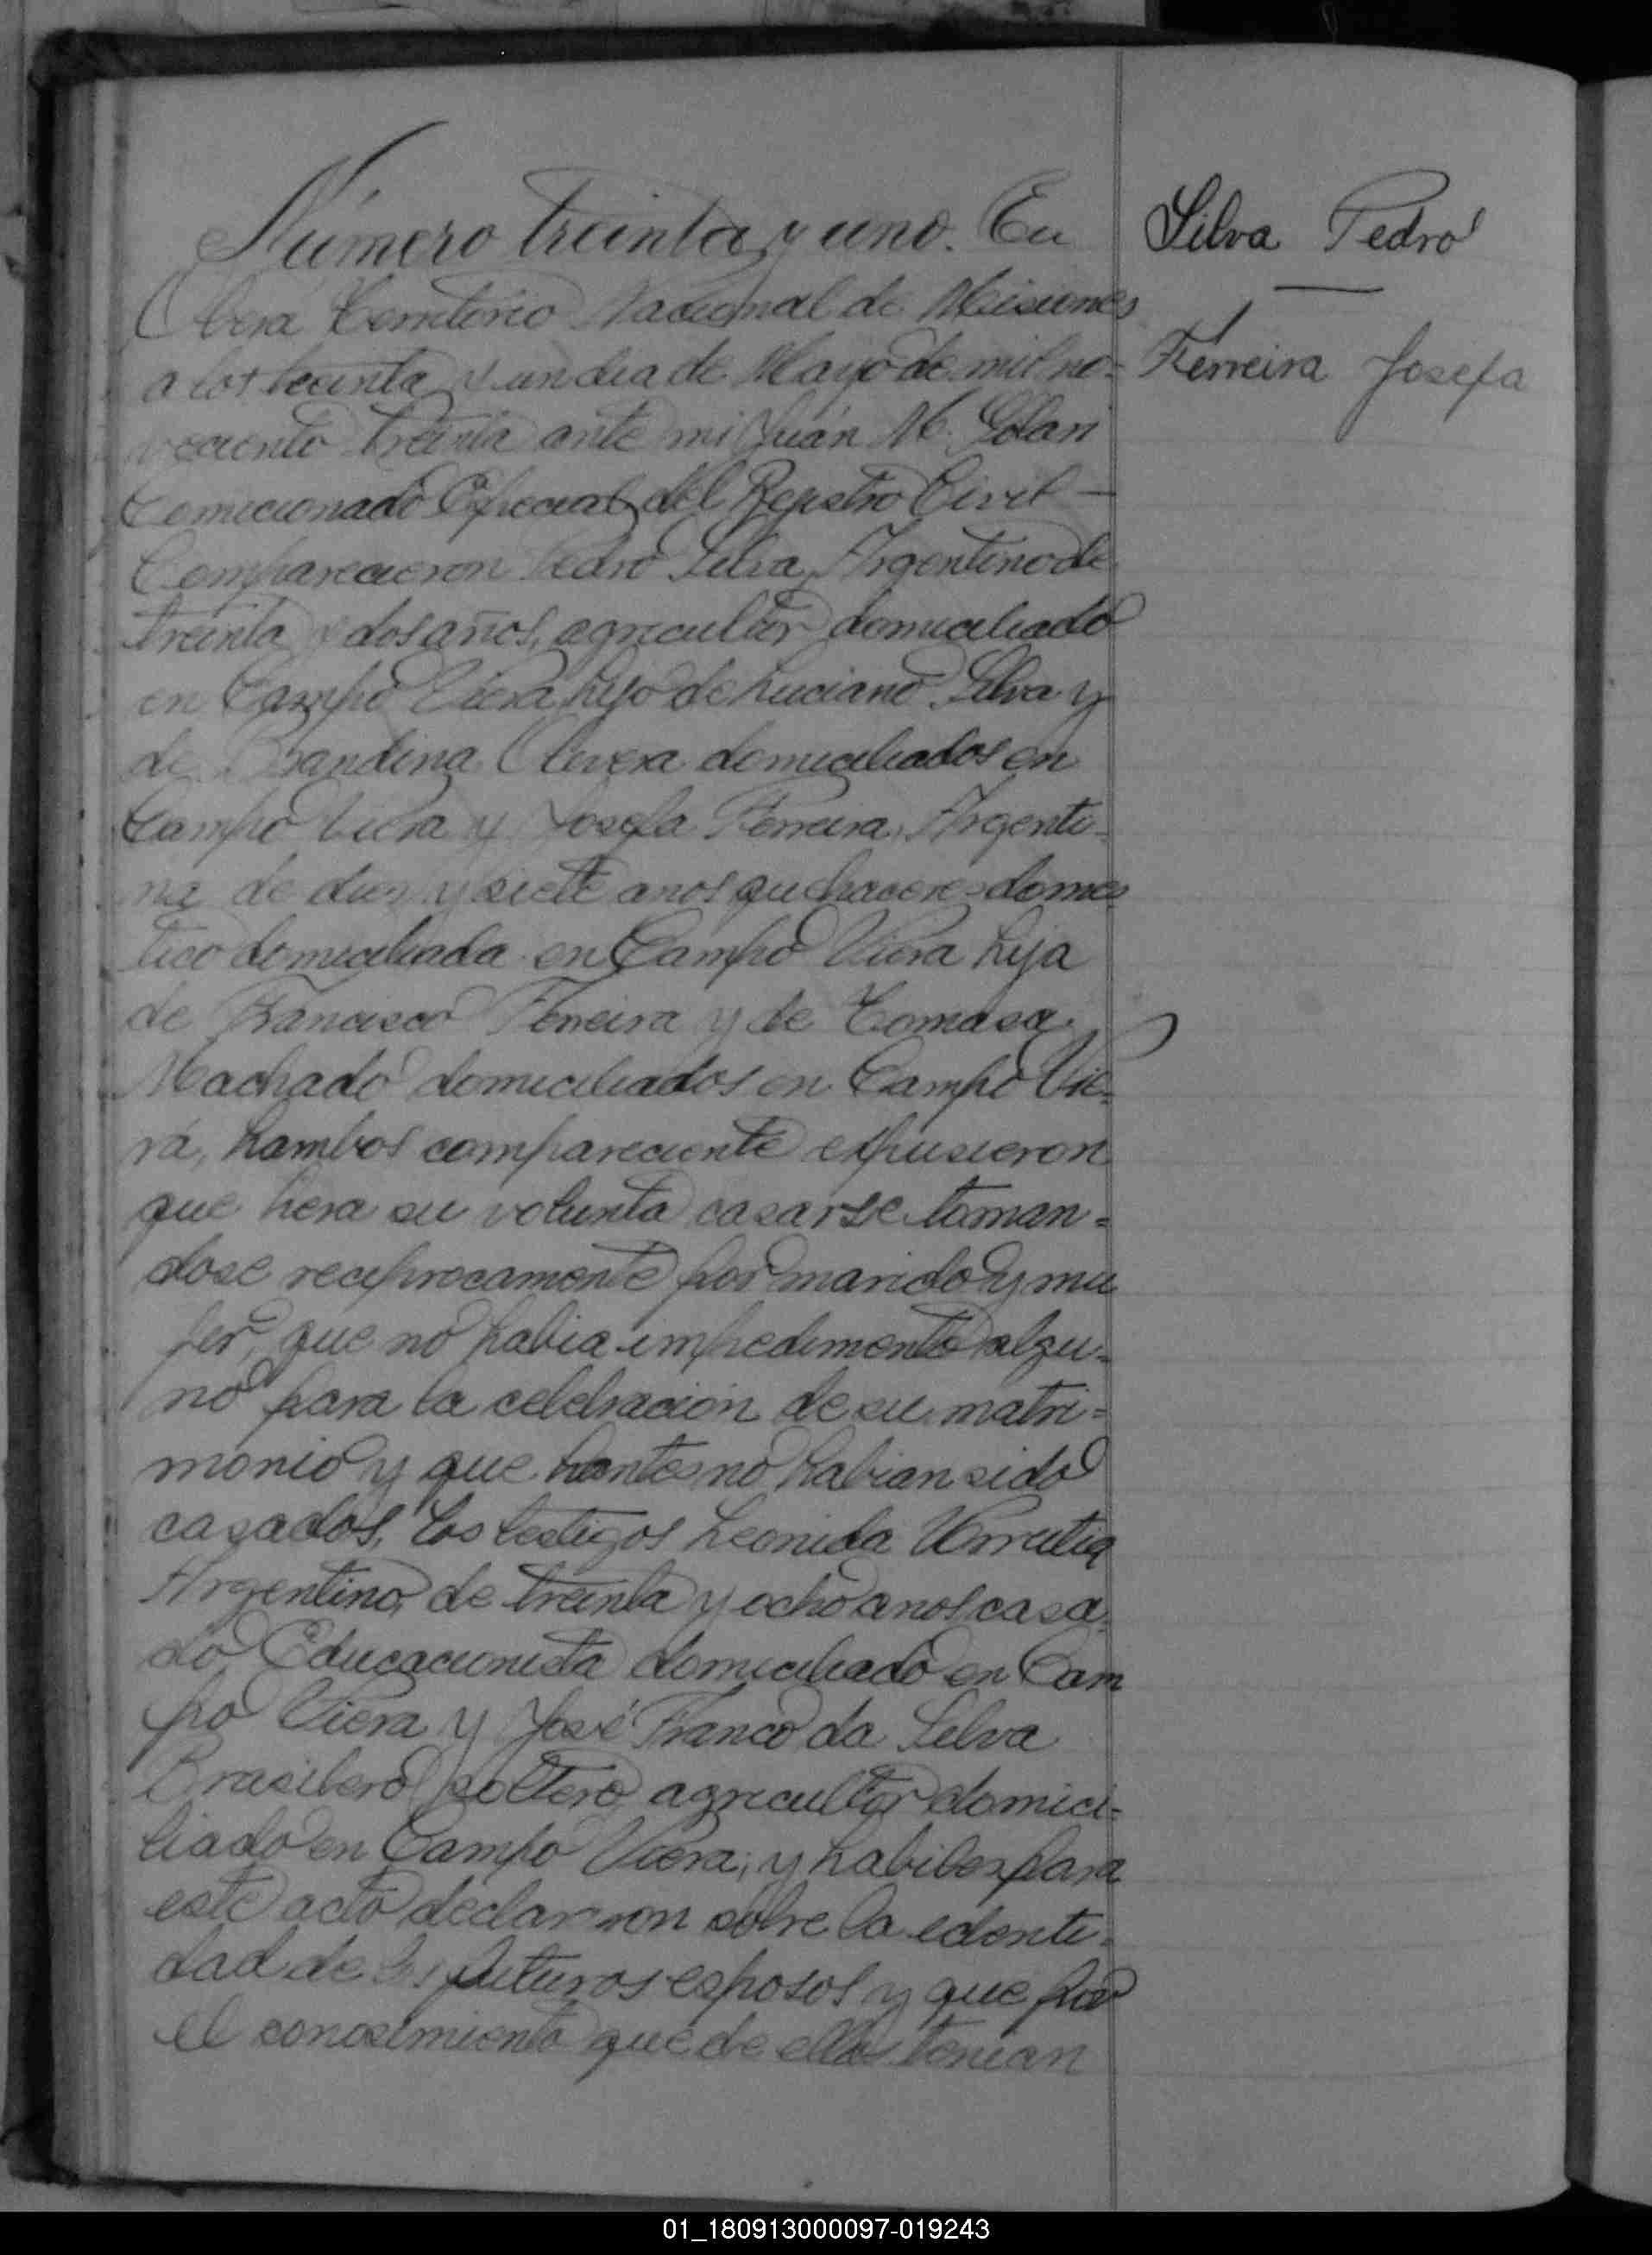 Número treinta y uno. En
Obera Territorio Nacional de Misiones
a los treinta y un dia de Mayo de mil no=
veciento treinta ante mi Juán M. Golari
Comicionado Especial del Registro Civil —
Comparecieron Pedro Silva, Argentino de
treinta y dos años, agricultor domiciliado
en Campo Viera hijo de Luciano Silva y
de Bandina Olivera domiciliados en
Campo Viera y Josefa Ferreira, Argenti-
na de diez y siete anos quehaceres domes
tico domiciliada en Campo Viera hija
de Francisco Ferreira y de Tomasa
Machado domiciliados en Campo Vie=
rá, hambos compareciente expusieron
que hera su volunta casarse toman=
dose reciprocamente por marido y mu
jer, que no habia impedimento algu=
no para la celebración de su matri=
monio y que hantes no habian sido
casados, los testigos Leonida Urrutia
Argentino, de treinta y ocho anos casa=
do Educacionista domiciliado en Cam
po Viera y José Franco da Silva
Brasilero soltero agricultor domici=
liado en Campo Viera; y habiles para
este acto declararon sobre la identi=
dad de los futuros esposos y que por
el conosimiento que de ellos tenian
Silva Pedro
Ferreira Josefa
01_180913000097-019243